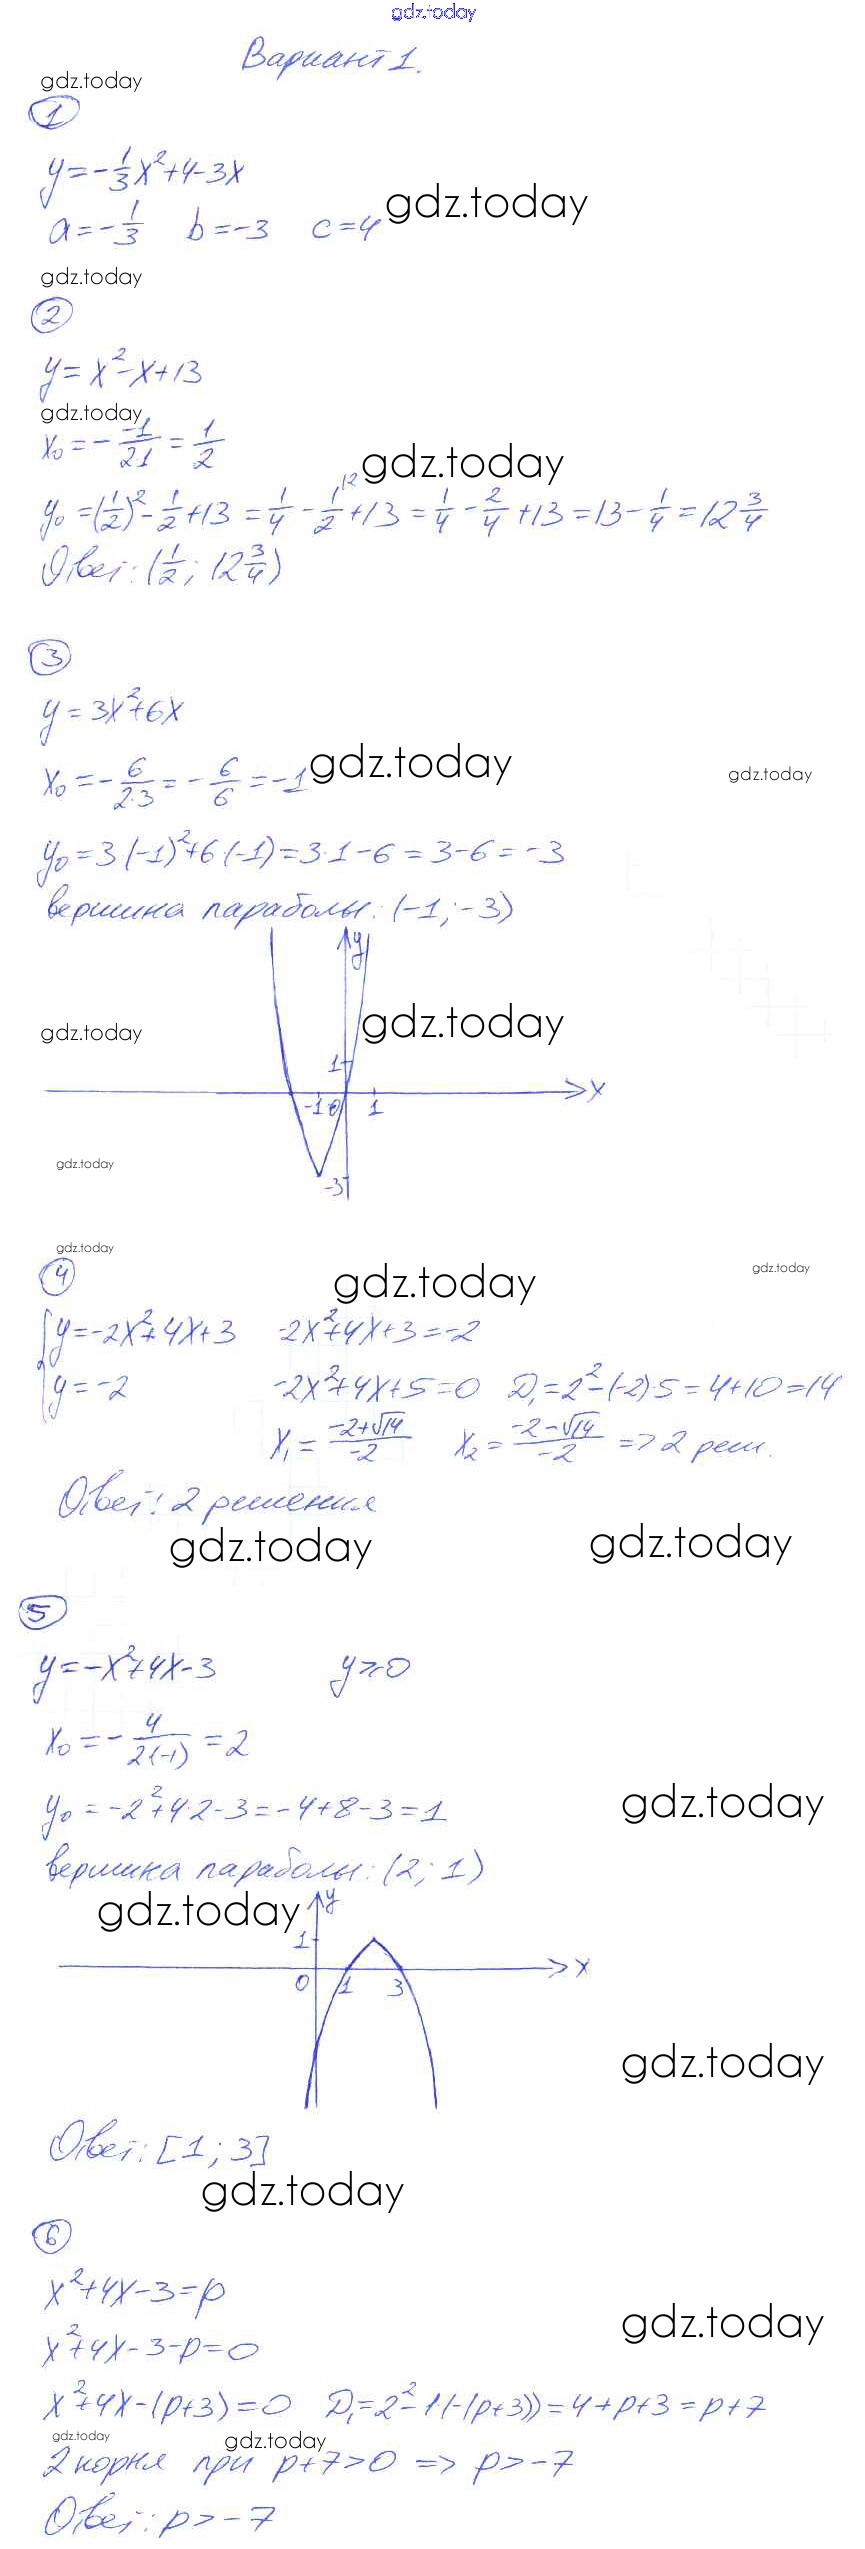 gdz.today
Вариант 1.
gdz.today
1
y = -1/3 x² + 4 - 3x
gdz.today
a = -1/3 b = -3 c = 4
gdz.today
2
y = x² - x + 13
gdz.today
x₀ = - -1/2·1 = 1/2
gdz.today
y₀ = (1/2)² - 1/2 + 13 = 1/4 - 1/2 \2 + 13 = 1/4 - 2/4 + 13 = 13 - 1/4 = 12 3/4
Ответ: (1/2; 12 3/4)
3
y = 3x² + 6x
x₀ = - 6/2·3 = - 6/6 = -1
gdz.today
gdz.today
y₀ = 3·(-1)² + 6·(-1) = 3·1 - 6 = 3 - 6 = -3
вершина параболы: (-1; -3)
y
gdz.today
gdz.today
1
x
-1 0 1
gdz.today
-3
gdz.today
4
gdz.today
gdz.today
{ y = -2x² + 4x + 3 -2x² + 4x + 3 = -2
y = -2 -2x² + 4x + 5 = 0 D₁ = 2² - (-2)·5 = 4 + 10 = 14
x₁ = -2+√14/-2 x₂ = -2-√14/-2 => 2 реш.
Ответ: 2 решения
gdz.today
gdz.today
5
y = -x² + 4x - 3 y ≥ 0
x₀ = - 4/2·(-1) = 2
y₀ = -2² + 4·2 - 3 = -4 + 8 - 3 = 1
gdz.today
вершина параболы: (2; 1)
gdz.today
y
1
x
0 1 3
gdz.today
Ответ: [1; 3]
gdz.today
6
x² + 4x - 3 = p
gdz.today
x² + 4x - 3 - p = 0
x² + 4x - (p+3) = 0 D₁ = 2² - 1·(-(p+3)) = 4 + p + 3 = p + 7
gdz.today
gdz.today
2 корня при p + 7 > 0 => p > -7
Ответ: p > -7